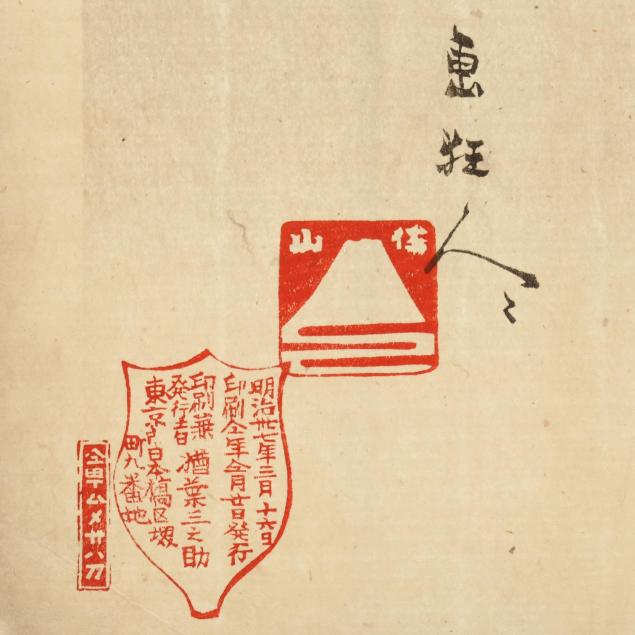 狂
人
山
明治卅七年三月十六日
印刷仝年仝月廿日発行
印刷兼
発行者 猶葉三之助
東京市日本橋区堀
町九番地